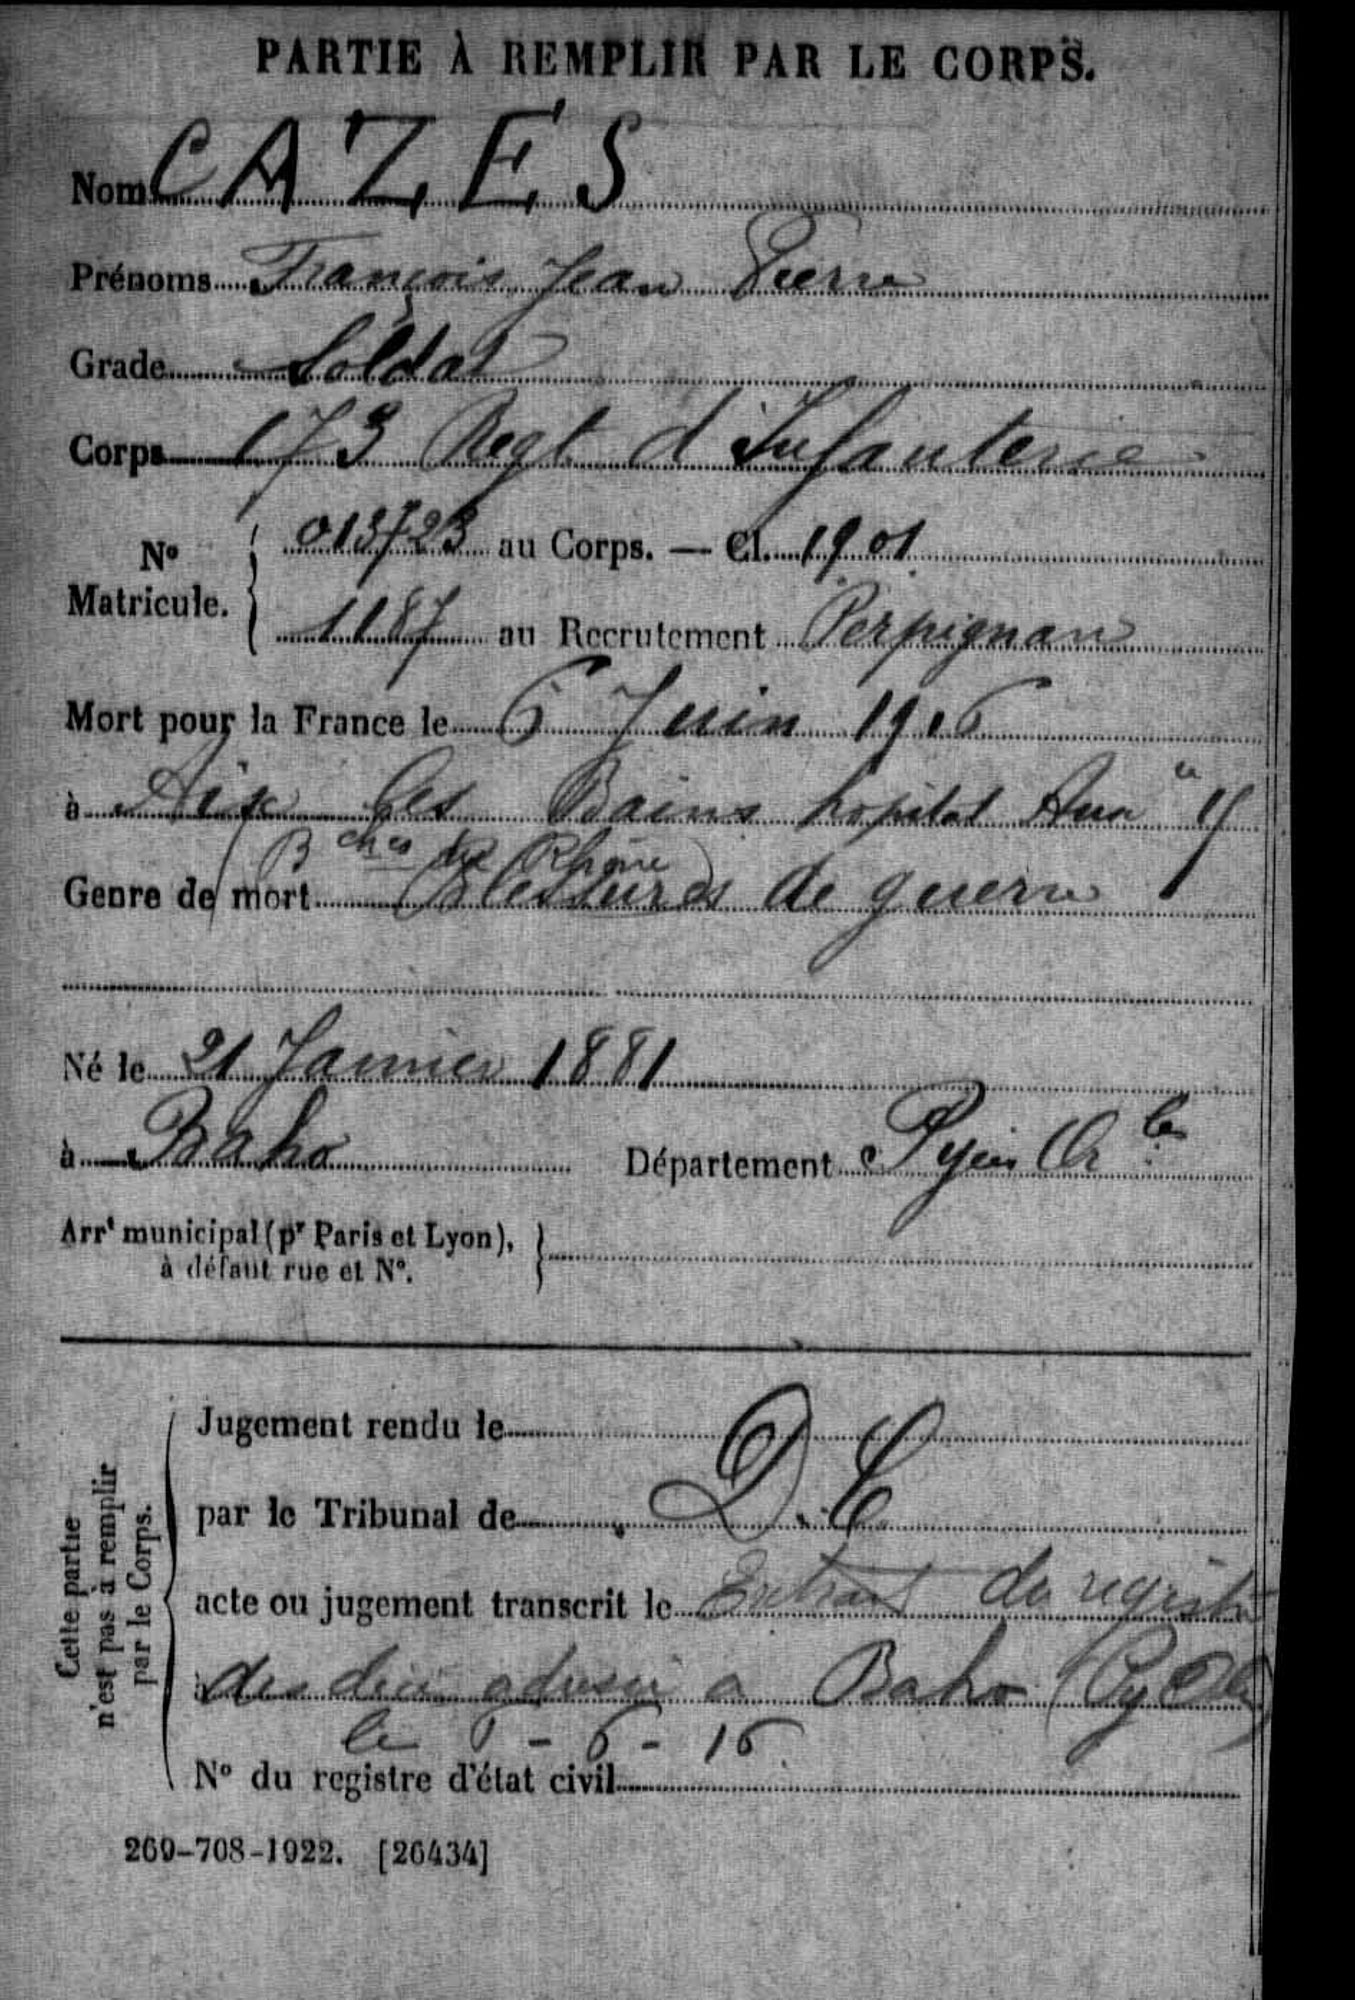 PARTIE À REMPLIR PAR LE CORPS.
Nom CAZES
Prénoms François Jean Pierre
Grade Soldat
Corps 173 Regt d'Infanterie
No Matricule. { 013723 au Corps. — Cl. 1901
1187 au Recrutement Perpignan
Mort pour la France le 6 Juin 1916
à Aix les Bains hopital Aux re
(Bches du Rhône)
Genre de mort Blessures de guerre
Né le 21 Janvier 1881
à Baho Département Pyrées Or les
Arrt municipal (pr Paris et Lyon),
à défaut rue et No.
Cette partie
n'est pas à remplir
par le Corps.
Jugement rendu le
par le Tribunal de D.C
acte ou jugement transcrit le Extrait du registre
des décès adressé a Baho (Py Or les)
le - 6 - 16
No du registre d'état civil
269-708-1922. [26434]